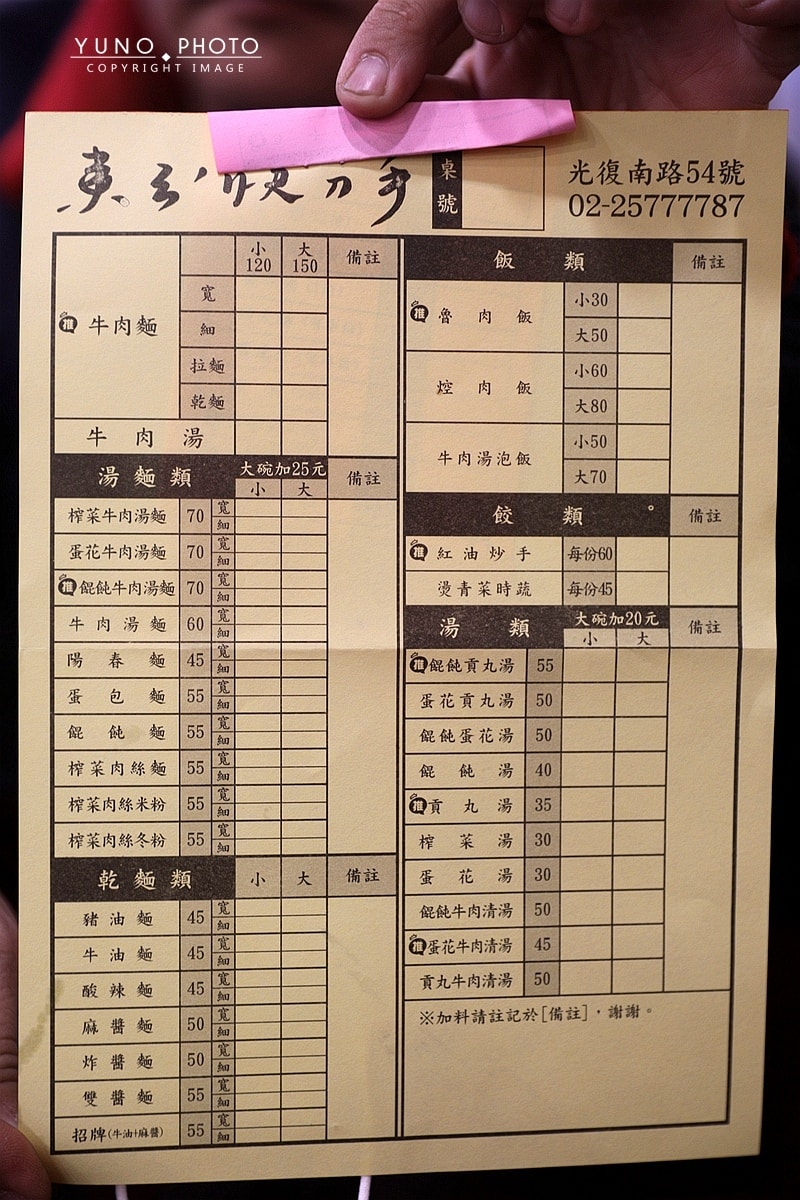 YUNO PHOTO
COPYRIGHT IMAGE
桌號
光復南路54號
02-25777787
小120 大150 備註
推 牛肉麵
寬
細
拉麵
乾麵
牛肉湯
湯麵類 大碗加25元 小 大 備註
榨菜牛肉湯麵 70 寬 細
蛋花牛肉湯麵 70 寬 細
推 餛飩牛肉湯麵 70 寬 細
牛肉湯麵 60 寬 細
陽春麵 45 寬 細
蛋包麵 55 寬 細
餛飩麵 55 寬 細
榨菜肉絲麵 55 寬 細
榨菜肉絲米粉 55 寬 細
榨菜肉絲冬粉 55 寬 細
乾麵類 小 大 備註
豬油麵 45 寬 細
牛油麵 45 寬 細
酸辣麵 45 寬 細
麻醬麵 50 寬 細
炸醬麵 50 寬 細
雙醬麵 55 寬 細
招牌(牛油+麻醬) 55 寬 細
飯類 備註
推 魯肉飯 小30
大50
焢肉飯 小60
大80
牛肉湯泡飯 小50
大70
餃類 備註
推 紅油炒手 每份60
燙青菜時蔬 每份45
湯類 大碗加20元 小 大 備註
推 餛飩貢丸湯 55
蛋花貢丸湯 50
餛飩蛋花湯 50
餛飩湯 40
推 貢丸湯 35
榨菜湯 30
蛋花湯 30
餛飩牛肉清湯 50
推 蛋花牛肉清湯 45
貢丸牛肉清湯 50
※加料請註記於[備註],謝謝。